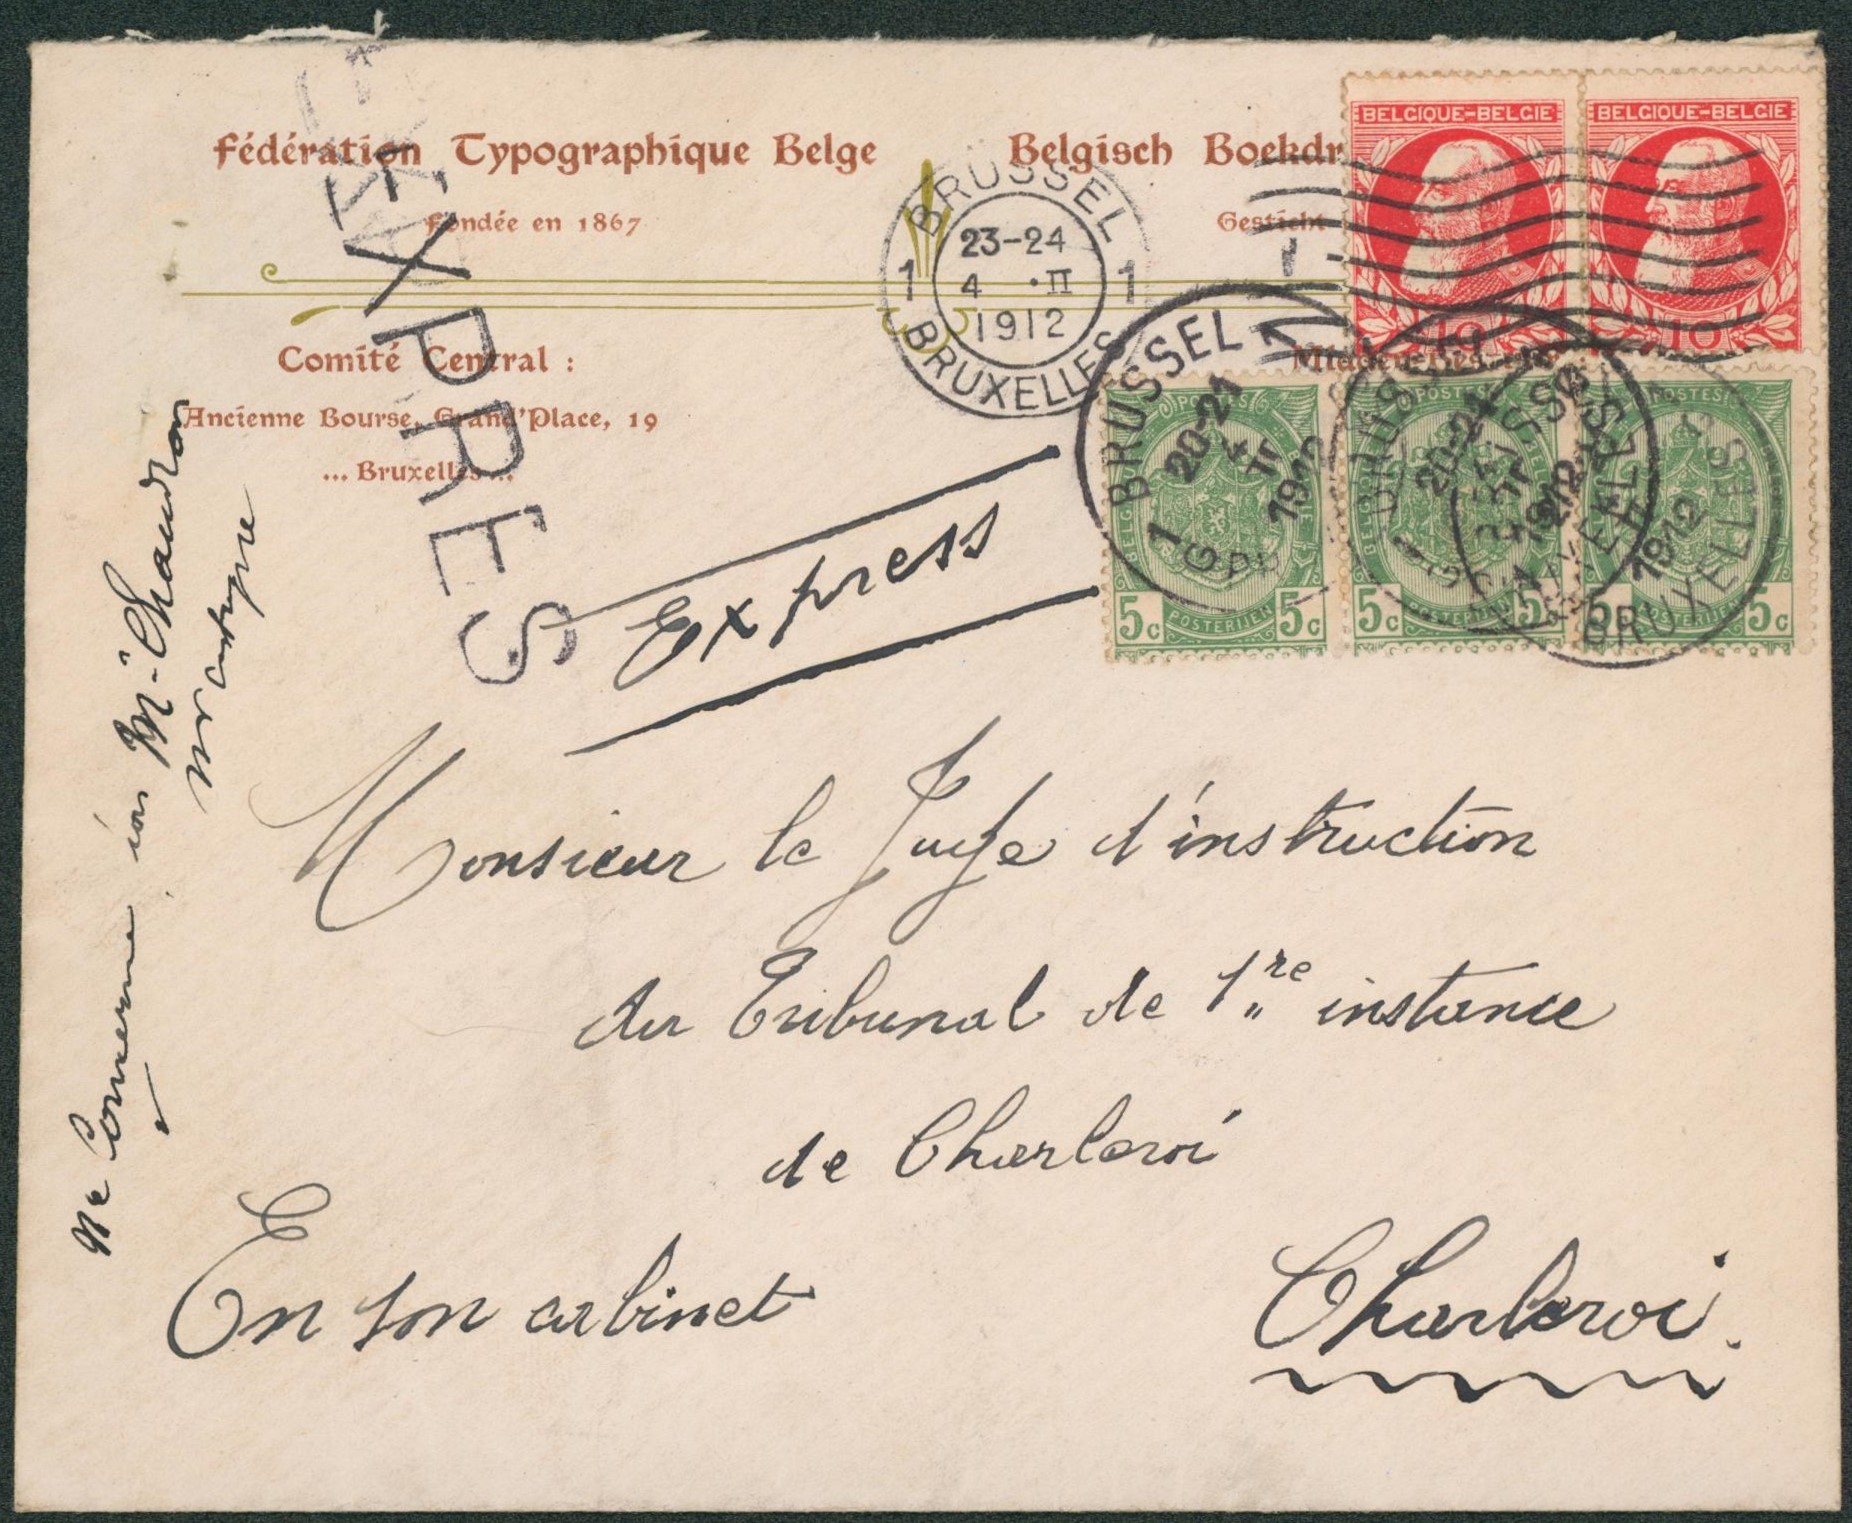 Fédération Typographique Belge
Fondée en 1867
Comité Central :
Ancienne Bourse, Grand'Place, 19
... Bruxelles ...
Belgisch Boekdr
Gesticht
EXPRES
BRUSSEL
1 23-24 1
4 ·II
1912
BRUXELLES
BELGIQUE-BELGIE
10
BELGIQUE-BELGIE
10
BRUSSEL
20-21
4 II
1912
1
POSTES
5c POSTERIJEN 5c
POSTES
20-21
5c POSTERIJEN 5c
POSTES
1912
BRUXELLES
5c POSTERIJEN 5c
Express
Monsieur le Juge d'instruction
du Tribunal de 1re instance
de Charleroi
En son cabinet
Charleroi.
Ne concerne M. Chaudron